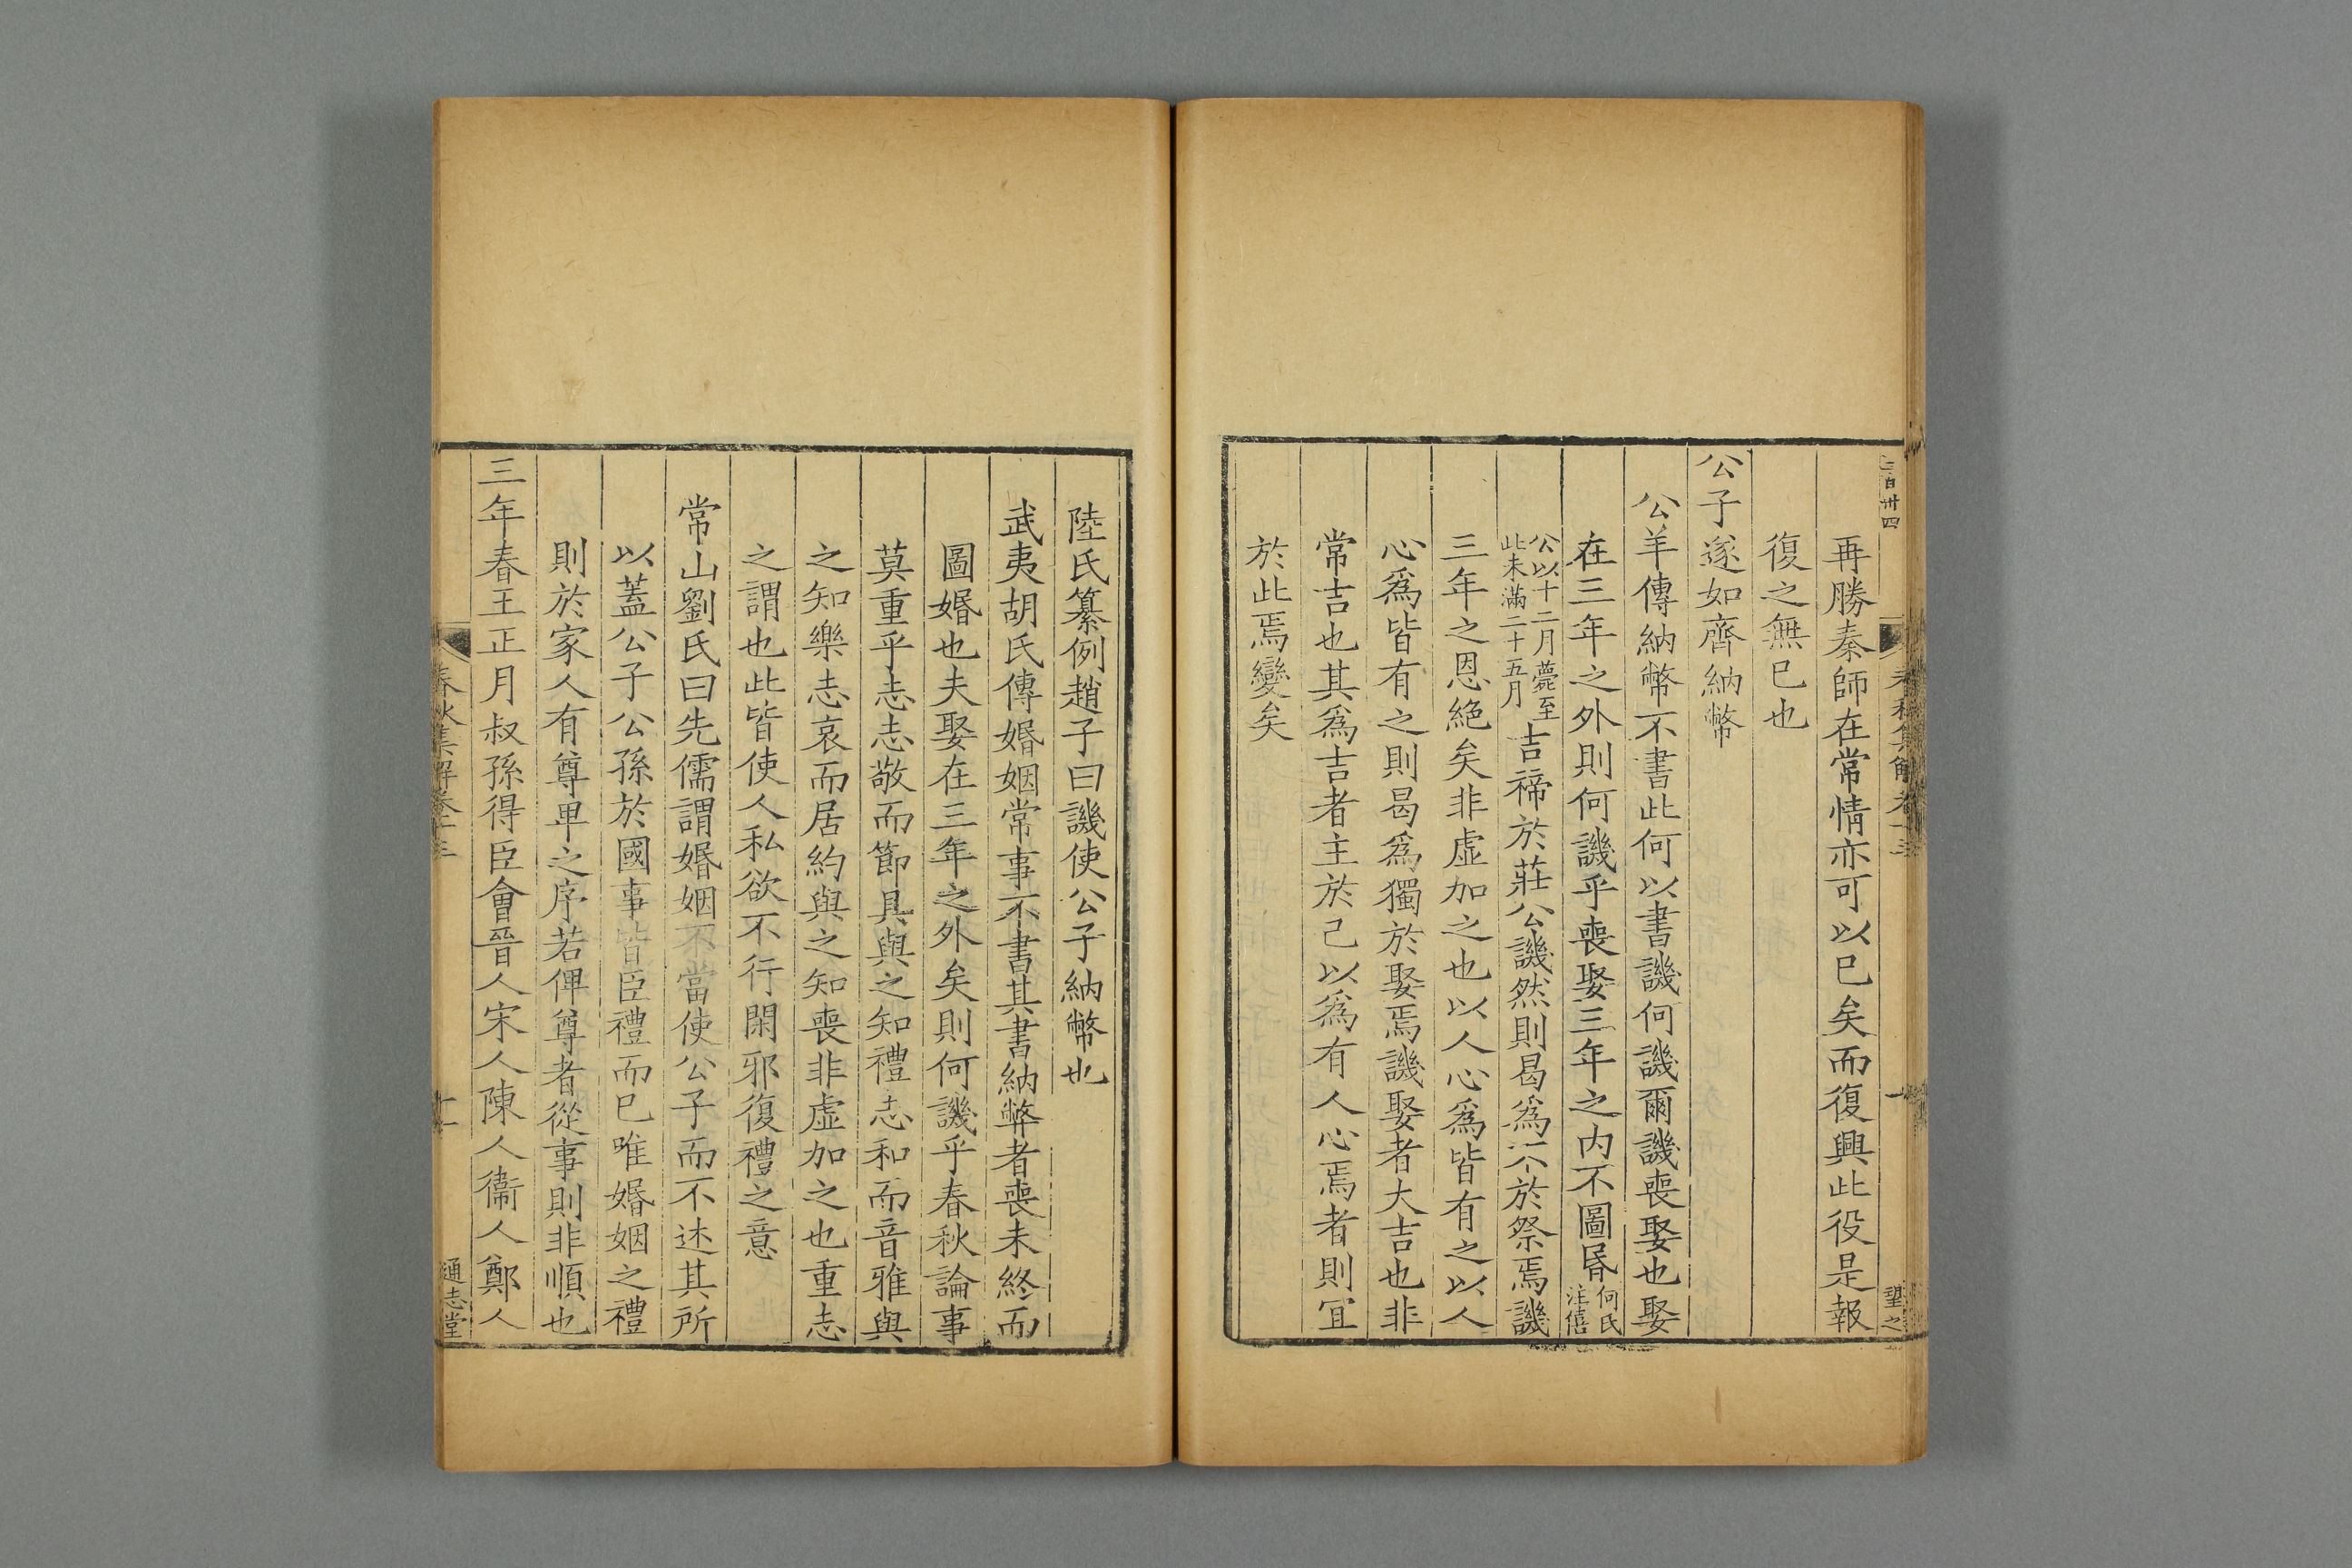 三百卅四
春秋集解卷十三
十一
望之
再勝秦師在常情亦可以已矣而復興此役是報
復之無已也
公子遂如齊納幣
公羊傳納幣不書此何以書譏何譏爾譏喪娶也娶
在三年之外則何譏乎喪娶三年之内不圖昬何氏注僖
公以十二月薨至此未滿二十五月吉禘於莊公譏然則曷爲不於祭焉譏
三年之恩絶矣非虛加之也以人心爲皆有之以人
心爲皆有之則曷爲獨於娶焉譏娶者大吉也非
常吉也其爲吉者主於己以爲有人心焉者則宜
於此焉變矣
陸氏纂例趙子曰譏使公子納幣也
武夷胡氏傳婚姻常事不書其書納幣者喪未終而
圖婚也夫娶在三年之外矣則何譏乎春秋論事
莫重乎志志敬而節具與之知禮志和而音雅與
之知樂志哀而居約與之知喪非虛加之也重志
之謂也此皆使人私欲不行閑邪復禮之意
常山劉氏曰先儒謂婚姻不當使公子而不述其所
以蓋公子公孫於國事皆臣禮而已唯婚姻之禮
則於家人有尊卑之序若俾尊者從事則非順也
三年春王正月叔孫得臣會晉人宋人陳人衞人鄭人
春秋集解卷十三
十一
通志堂